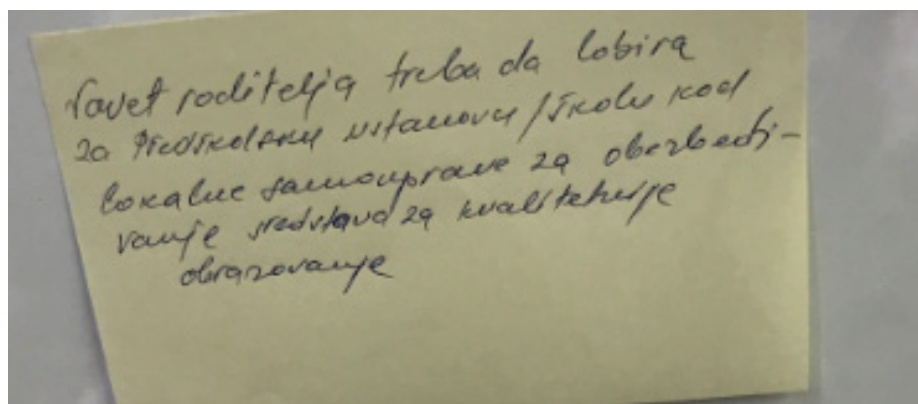 Savet roditelja treba da lobira
za Predškolsku ustanovu / školu kod
lokalne samouprave za obezbeđi-
vanje sredstava za kvalitetnije
obrazovanje